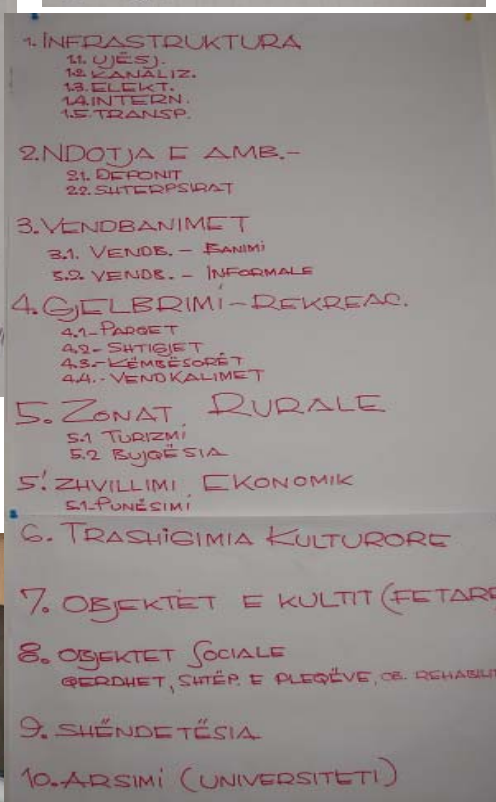 1. INFRASTRUKTURA
1.1. UJËSJ.
1.2 KANALIZ.
1.3. ELEKT.
1.4. INTERN.
1.5 TRANSP.
2. NDOTJA E AMB.-
2.1. DEPONIT
2.2. SHTERPSIRAT
3. VENDBANIMET
3.1. VENDB. - BANIMI
3.2. VENDB. - INFORMALE
4. GJELBRIMI - REKREAC.
4.1- PARQET
4.2- SHTIGJET
4.3- KËMBËSORËT
4.4.- VENDKALIMET
5. ZONAT RURALE
5.1 TURIZMI
5.2 BUJQËSIA
5! ZHVILLIMI EKONOMIK
5.1- PUNËSIMI
6. TRASHIGIMIA KULTURORE
7. OBJEKTET E KULTIT (FETARE
8. OBJEKTET SOCIALE
QERDHET, SHTËP. E PLEQËVE, OB. REHABILI
9. SHËNDETËSIA
10. ARSIMI (UNIVERSITETI)